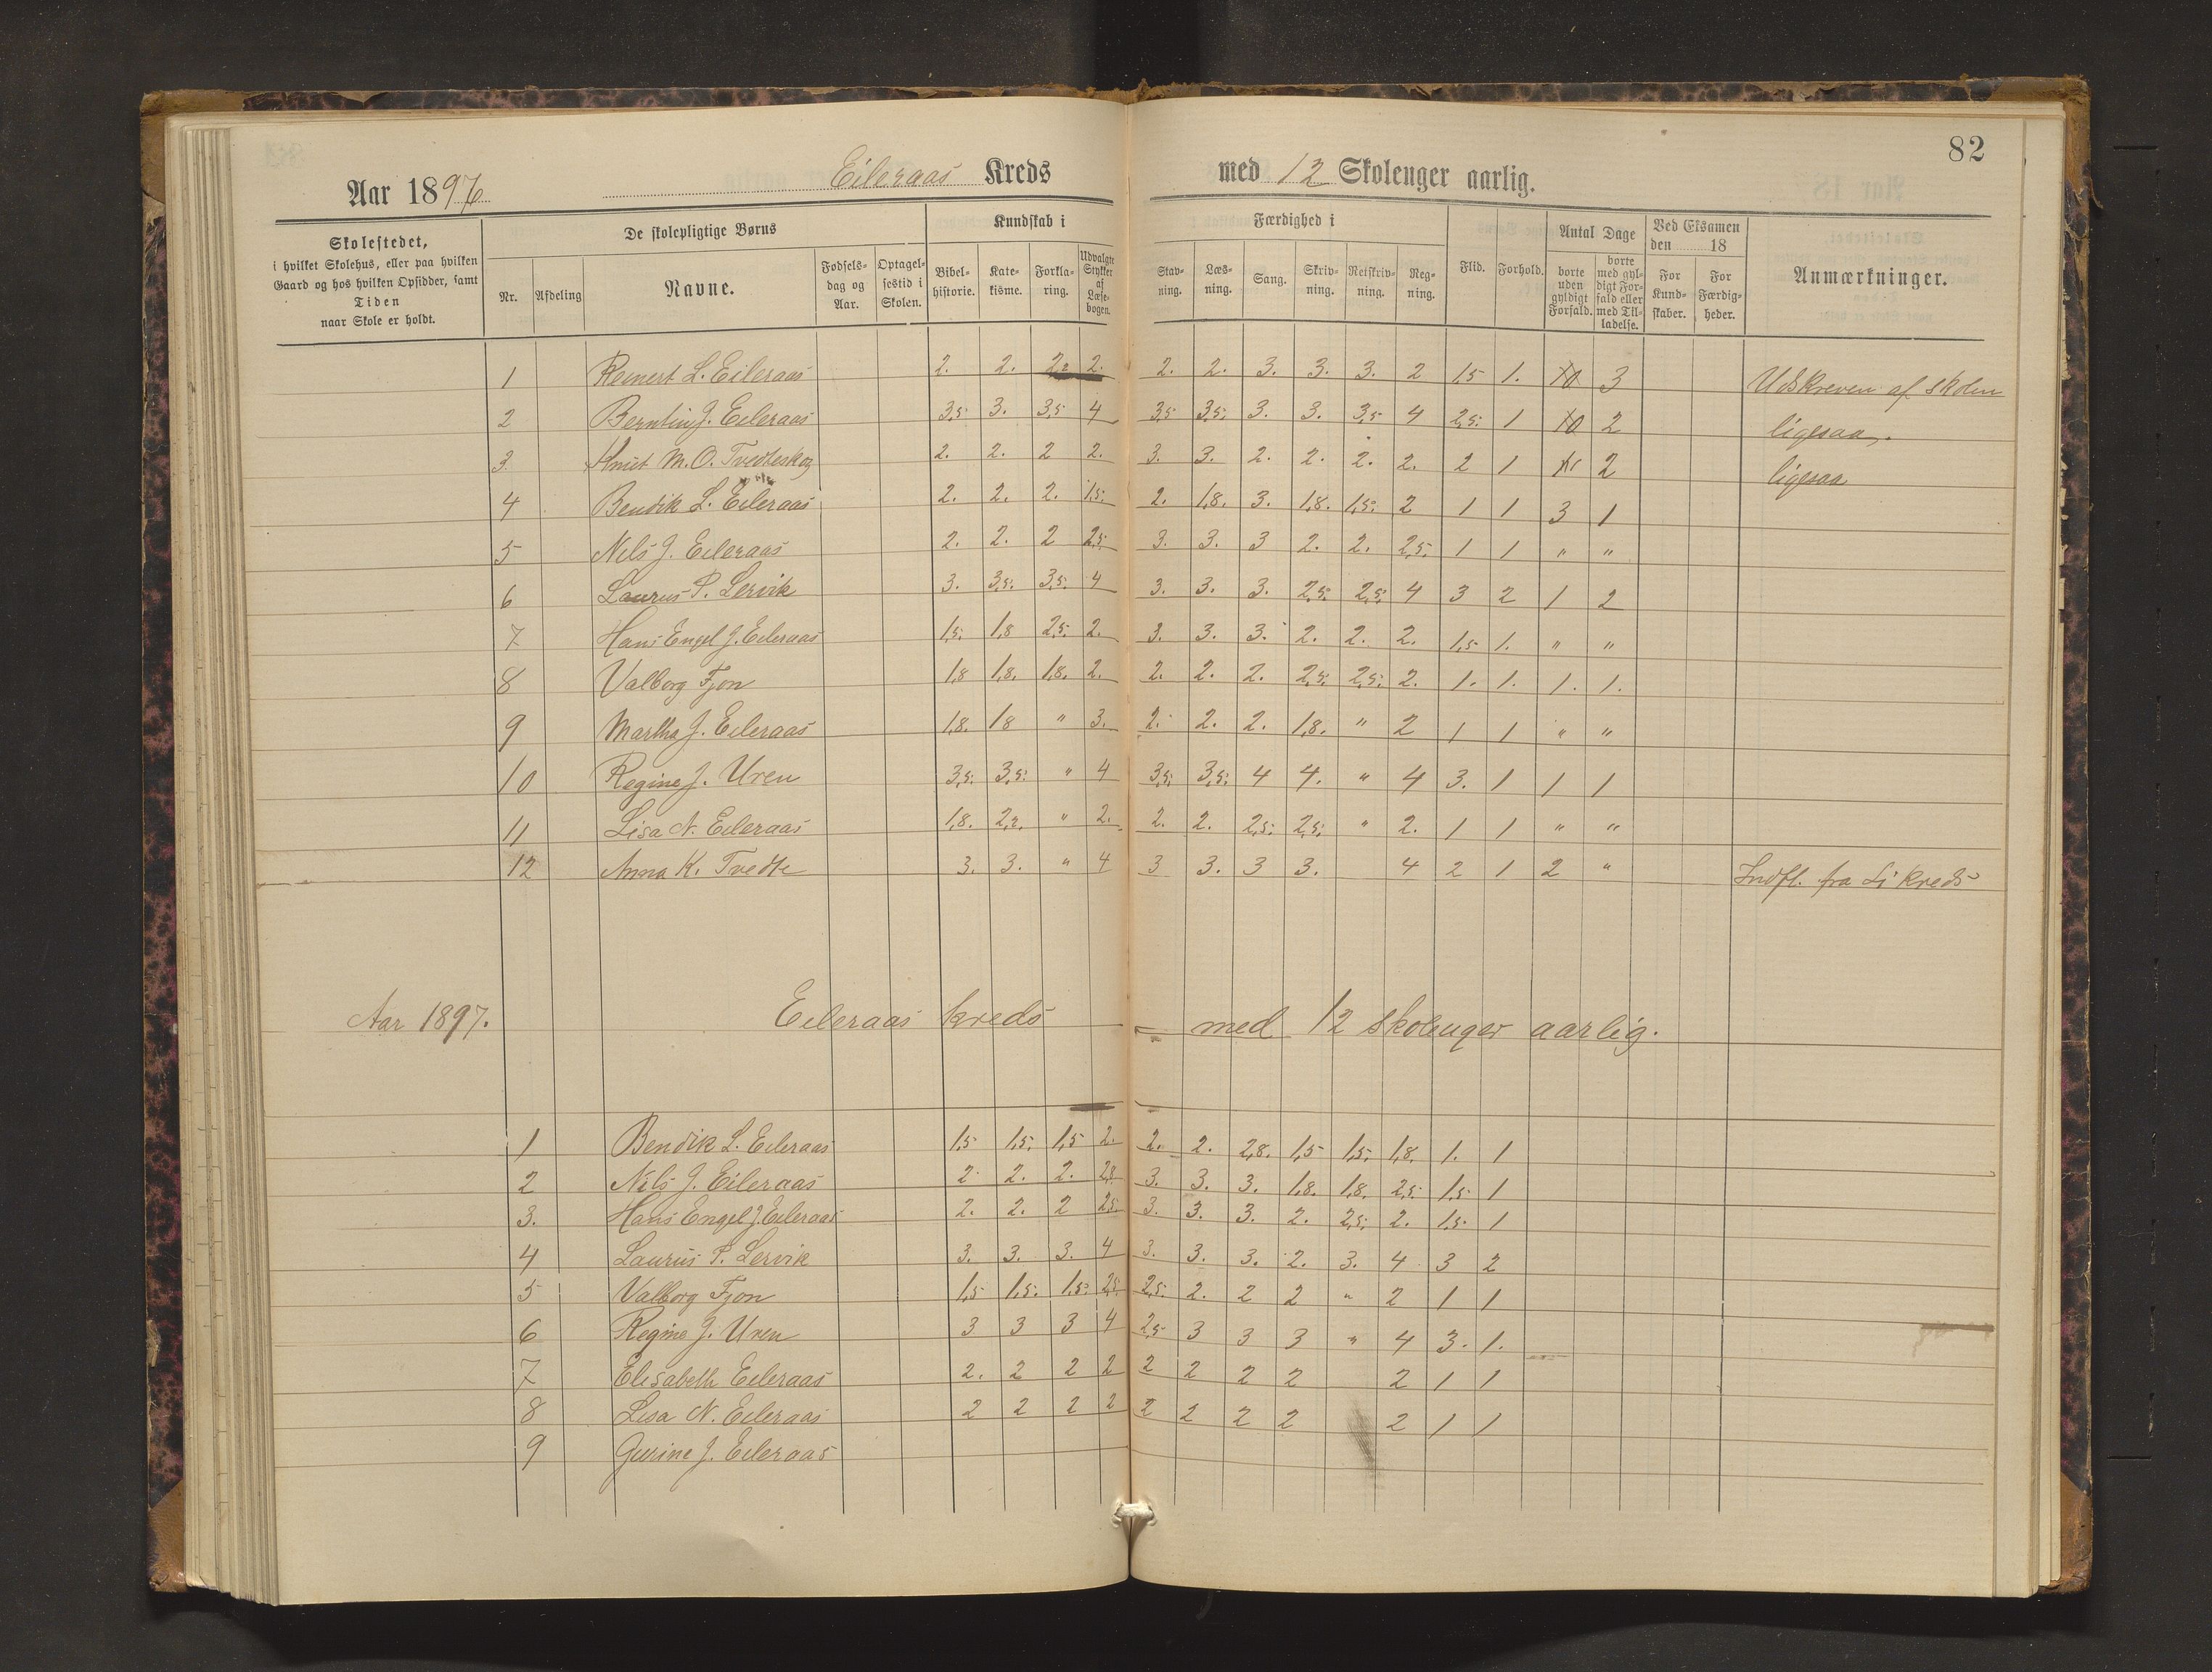 82
Aar 1896 Eileraas Kreds med 12 Skoleuger aarlig.
Skolestedet, i hvilket Skolehus, eller paa hvilken Gaard og hos hvilken Opsidder, samt Tiden naar Skole er holdt.
De skolepligtige Børns
Nr. Afdeling Navne. Fødsels-dag og Aar. Optagel-sestid i Skolen.
Kundskab i
Bibel-historie. Kate-kisme. Forkla-ring. Udvalgte Stykker af Læse-bogen.
Færdighed i
Stav-ning. Læs-ning. Sang. Skriv-ning. Retskriv-ning. Reg-ning.
Flid. Forhold.
Antal Dage
borte uden gyldigt Forfald. borte med gyl-digt For-fald eller med Til-ladelse.
Ved Eksamen den 18
For Kund-skaber. For Færdig-heder.
Anmærkninger.
1 Reinert L. Eileraas 2. 2. 2. 2. 2. 2. 3. 3. 3. 2 1,5 1. 3 Udskreven af skolen
2 Berntin J. Eileraas 3,5 3. 3,5 4 3,5 3,5 3. 3. 3,5 4 2,5 1 2 ligesaa.
3. Knut M. O. Tvedteskog 2. 2. 2 2. 3. 3. 2. 2. 2. 2. 2 1 2 ligesaa
4 Bendik L. Eileraas 2. 2. 2. 1,5. 2. 1,8. 3. 1,8. 1,5. 2 1 1 3 1
5 Nils J. Eileraas 2. 2. 2 2,5. 3. 3. 3 2. 2. 2,5. 1 1 " "
6 Laurus P. Lervik 3. 3,5. 3,5. 4 3. 3. 3. 2,5. 2,5. 4 3 2 1 2
7 Hans Engel J. Eileraas 1,5. 1,8 2,5. 2. 3. 3. 3. 2. 2. 2. 1,5 1. " "
8 Valborg Fjon 1,8 1,8. 1,8. 2. 2. 2. 2. 2,5. 2,5. 2. 1. 1. 1. 1.
9 Martha J. Eileraas 1,8. 1,8 " 3. 2. 2. 2. 1,8. " 2 1 1 " "
10 Regine J. Uren 3,5. 3,5. " 4 3,5. 3,5. 4 4. " 4 3. 1 1 1
11 Lisa N. Eileraas 1,8. 2,2. " 2. 2. 2. 2,5. 2,5. " 2. 1 1 " "
12 Anna K. Tvedte 3. 3. " 4 3 3. 3 3. 4 2 1 2 " Indfl. fra Li Kreds
Aar 1897. Eileraas kreds med 12 skoleuger aarlig.
1 Bendik L. Eileraas 1,5 1,5. 1,5 2. 2. 2. 2,8. 1,5 1,5. 1,8. 1. 1
2 Nils J. Eileraas 2. 2. 2. 2,8 3. 3. 3. 1,8. 1,8. 2,5. 1,5. 1
3. Hans Engel J. Eileraas 2. 2. 2 2,5. 3. 3. 3. 2. 2,5. 2. 1,5. 1
4 Laurus P. Lervik 3. 3. 3. 4 3. 3. 3. 2. 3. 4 3 2
5 Valborg Fjon 1,5 1,5. 1,5. 2,5. 2,5. 2. 2 2 " 2 1 1
6 Regine J. Uren 3 3 3 4 2,5 3 3 3 " 4 3. 1.
7 Elisabeth Eileraas 2. 2 2 2 2 2 2 2 2 1 1
8 Lisa N. Eileraas 2 2 2 2 2 2 2 2 2 1 1
9 Gurine J. Eileraas